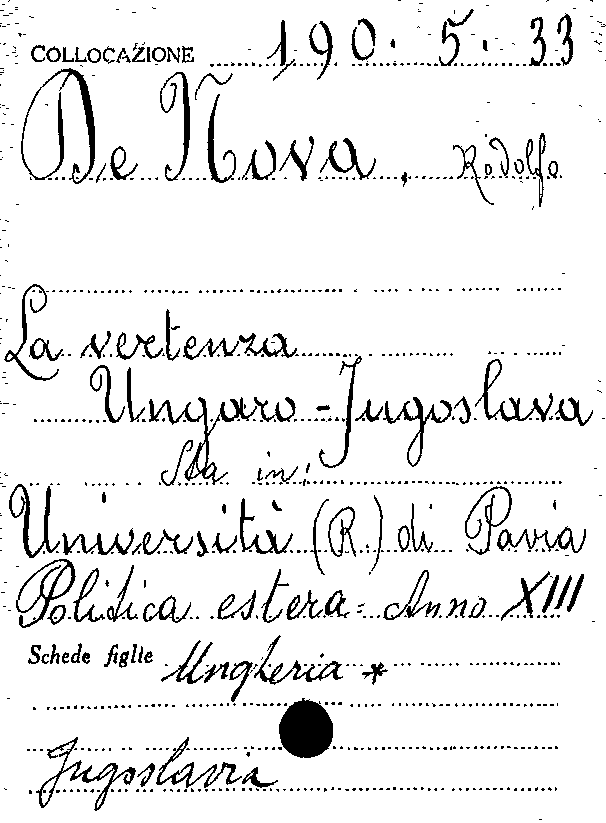 COLLOCAZIONE 190. 5. 33
De Nova, Rodolfo
La vertenza
Ungaro-Jugoslava
Sta in:
Università (R.) di Pavia
Politica estera= Anno XIII
Schede figlie Ungheria *
Jugoslavia